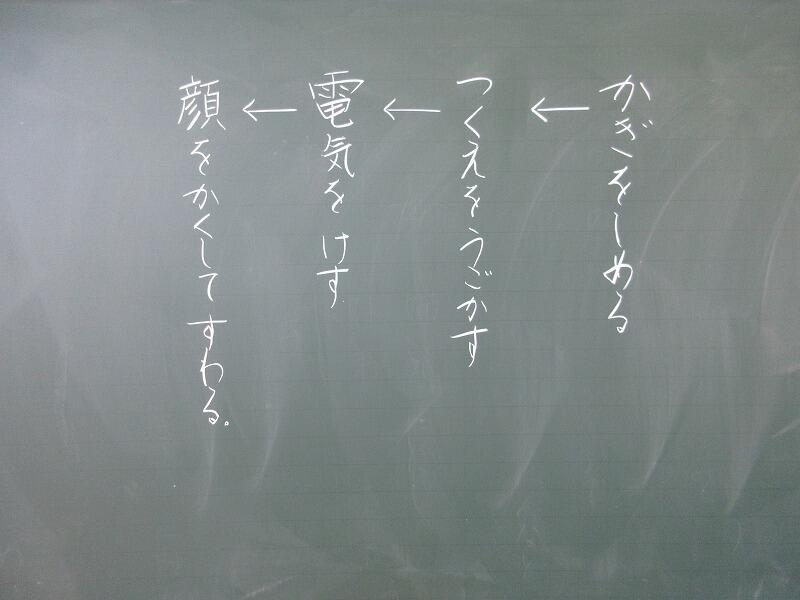 かぎをしめる
←
つくえをうごかす
←
電気をけす
←
顔をかくしてすわる。